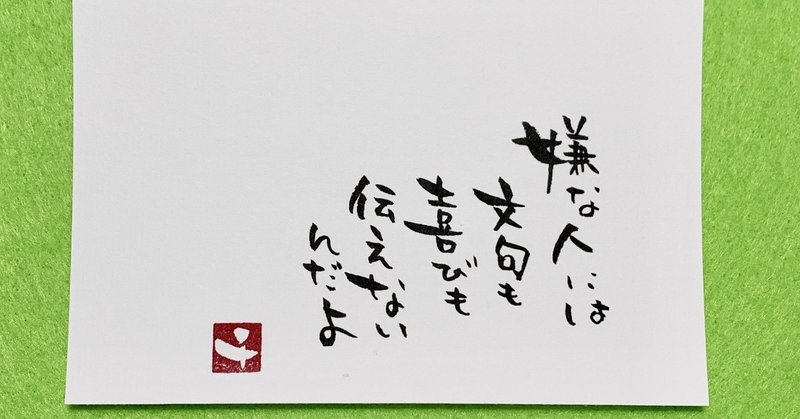 嫌な人には
文句も
喜びも
伝えない
んだよ